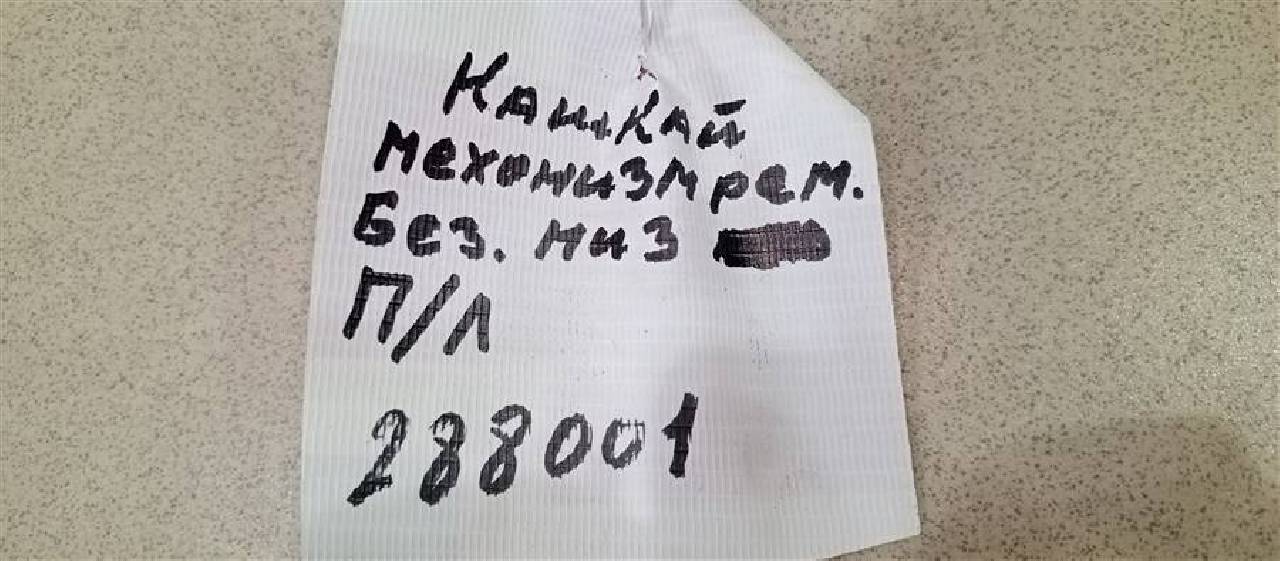 Кашкай
механизм рем.
Без. низ
П/Л
288001